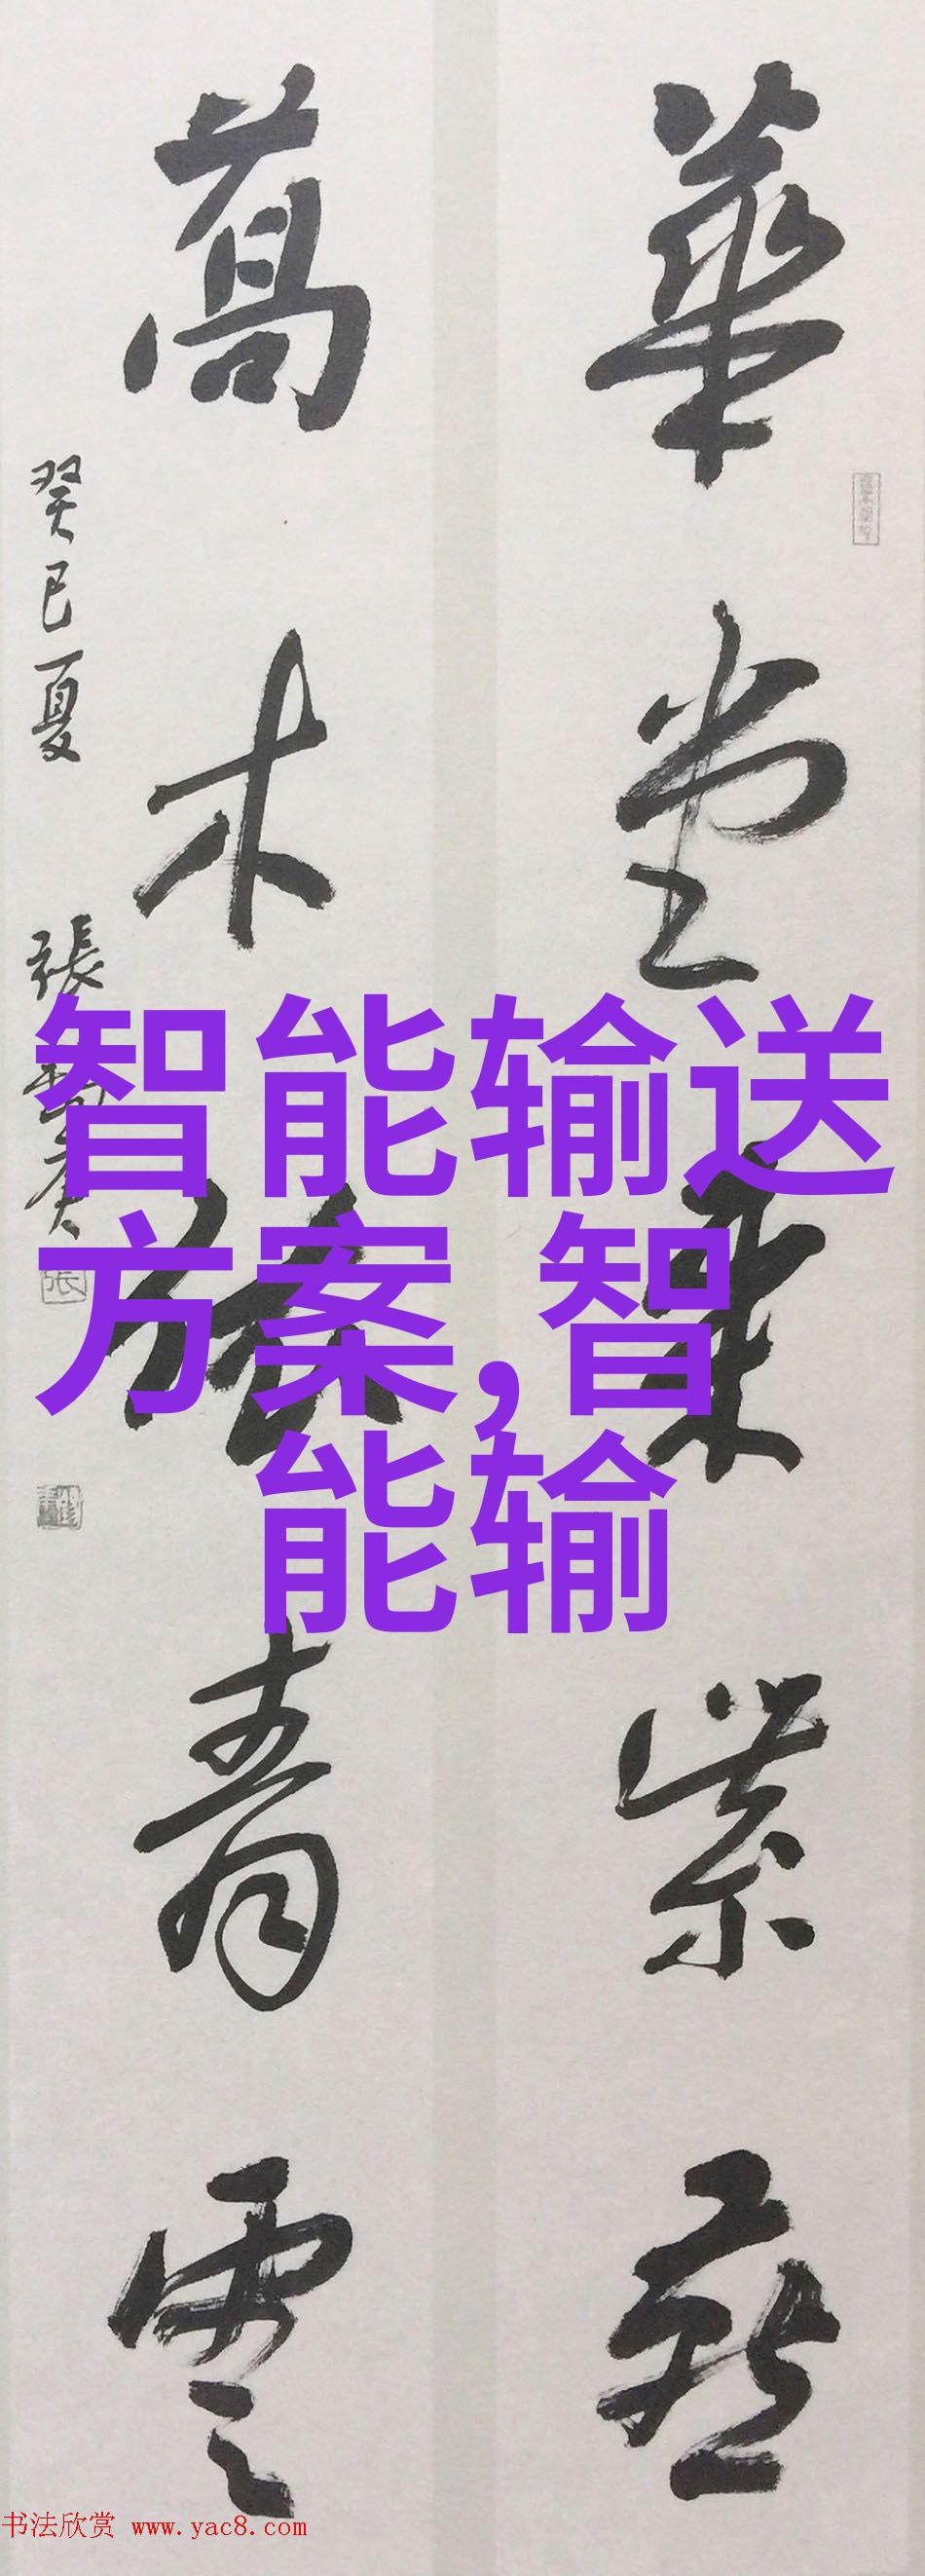 華堂來紫燕
萬木青雲
癸巳夏 張
智能输送
方案,智
能输
书法欣赏 www.yac8.com